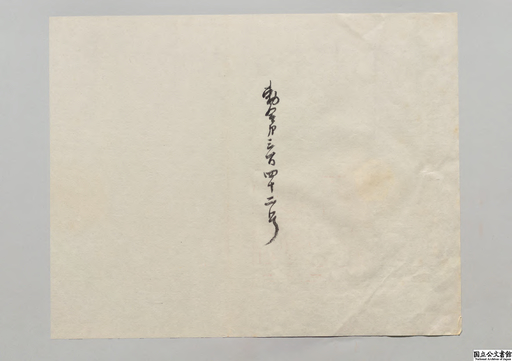 勅令第三百四十二号
国立公文書館
National Archives of Japan